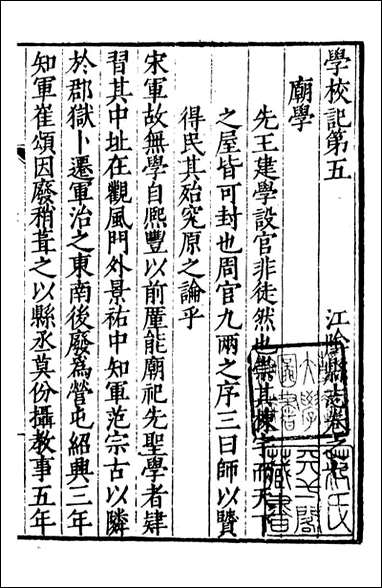 學校記第五　江陰縣志卷之七
廟學
先王建學設官非徒然也崇其棟宇而天下
之屋皆可封也周官九兩之序三曰師以賢
得民其殆究原之論乎
宋軍故無學自熙豐以前厪能廟祀先聖學者肄
習其中址在觀風門外景祐中知軍范宗古以隣
於郡獄卜遷軍治之東南後廢為營屯紹興三年
知軍崔頌因廢稍葺之以縣丞莫份攝教事五年